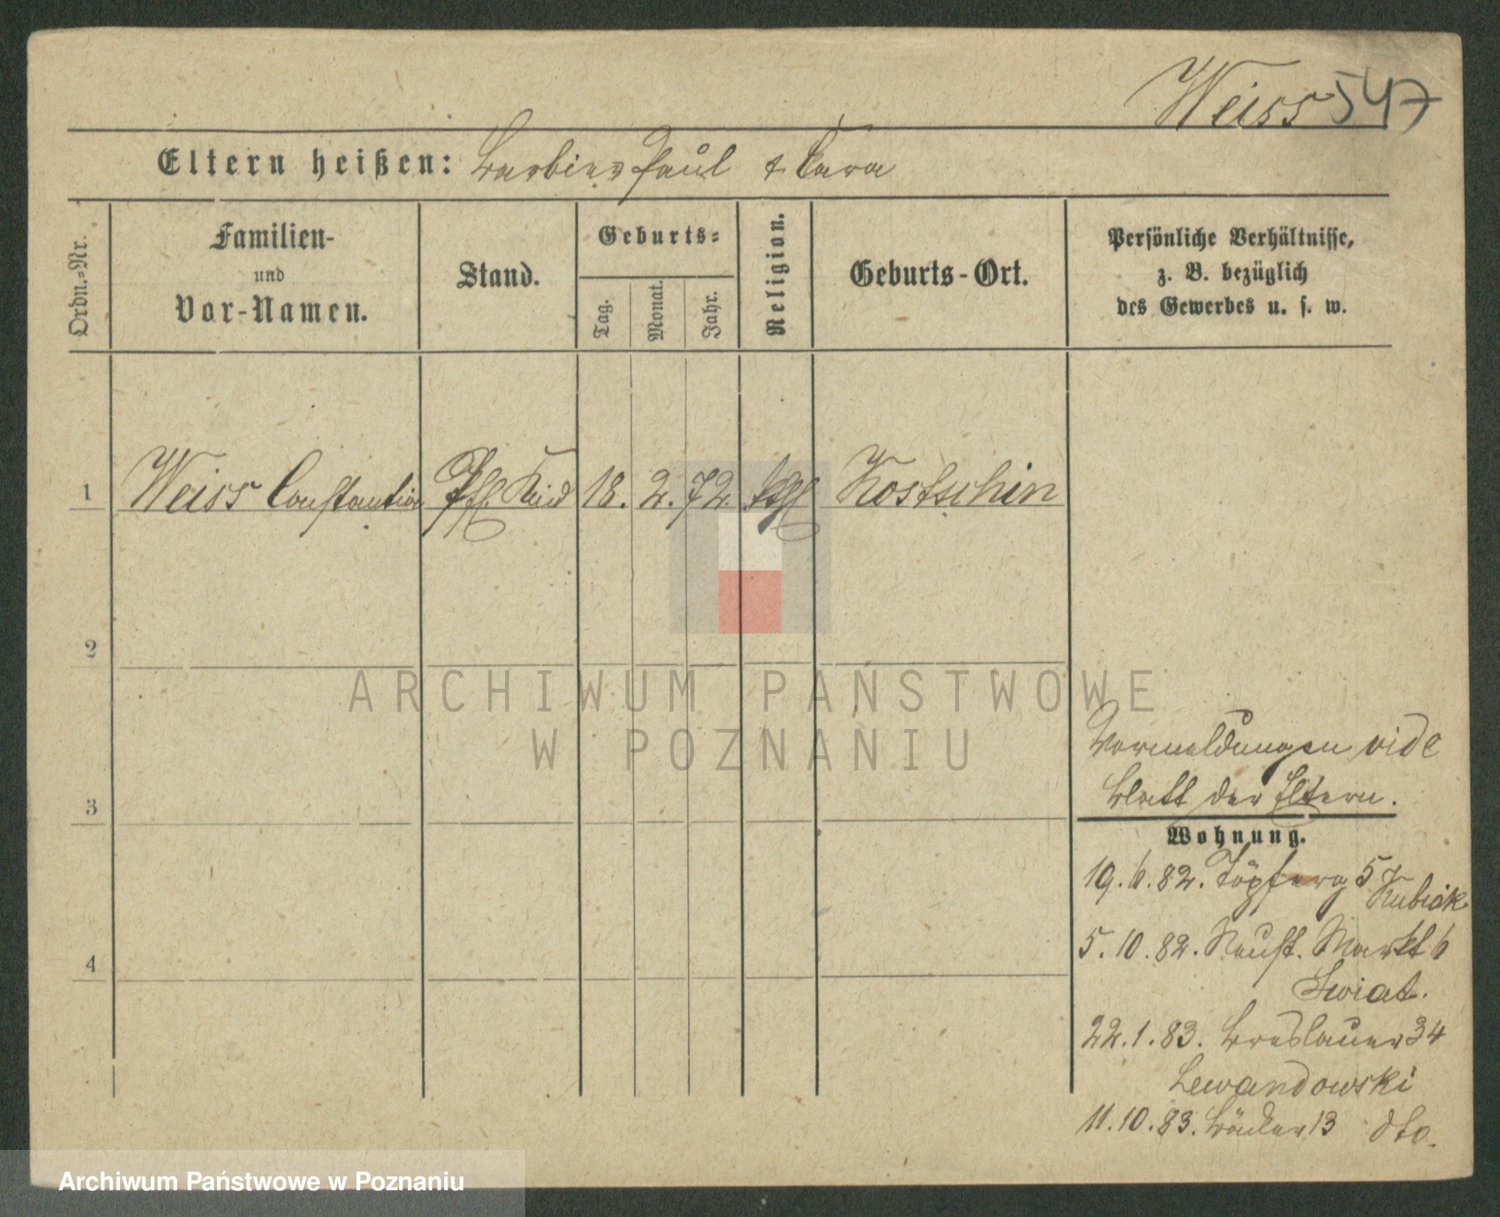 Weiss 547
Eltern heißen: Barbier Paul & Clara
Ordn.-Nr.
Familien-
und
Vor-Namen.
Stand.
Geburts-
Tag.
Monat.
Jahr.
Religion.
Geburts-Ort.
Persönliche Verhältnisse,
z. B. bezüglich
des Gewerbes u. s. w.
1 Weiss Constantin Pfl. Kind 18. 2. 72. kth Kostschin
2
3
4
Vormeldungen vide
Blatt der Eltern.
Wohnung.
19. 6. 82. Töpferg 5
Kubiak
5. 10. 82. Neust. Markt 6
Swiat.
22. 1. 83. Breslauer 34
Lewandowski
11. 10. 83. Bäcker 13 dto.
ARCHIWUM PAŃSTWOWE
W POZNANIU
Archiwum Państwowe w Poznaniu